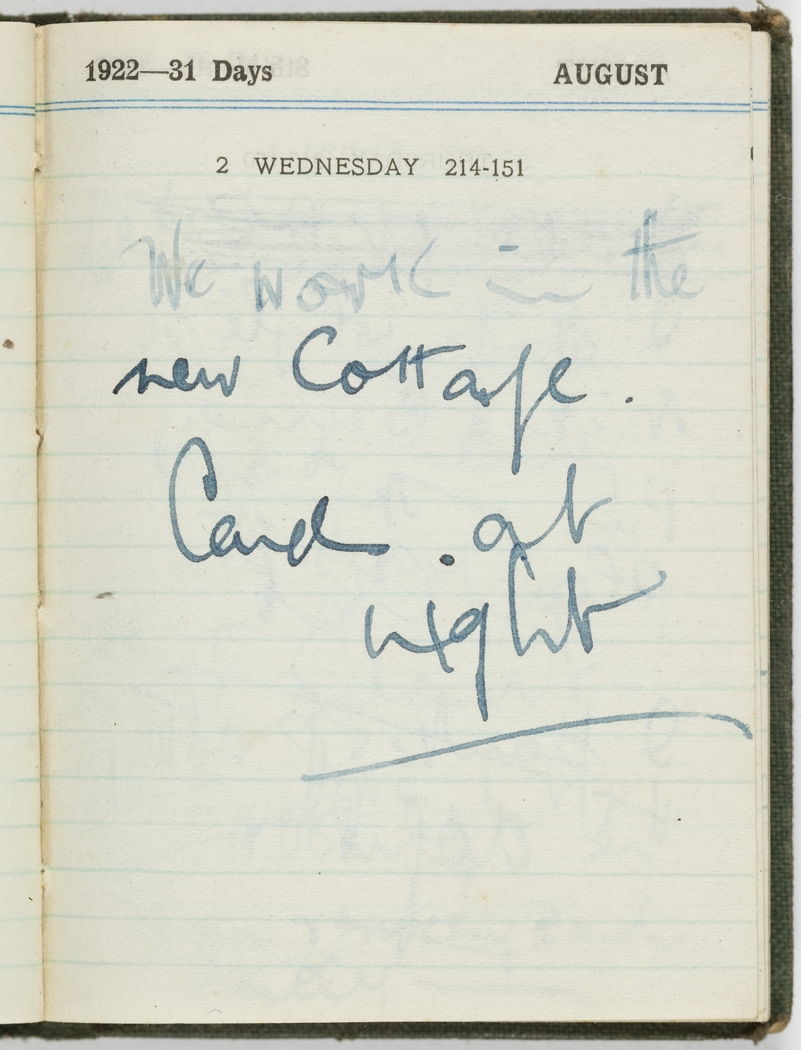 1922—31 Days AUGUST
2 WEDNESDAY 214-151
We work in the
new Cottage.
Card. at
night